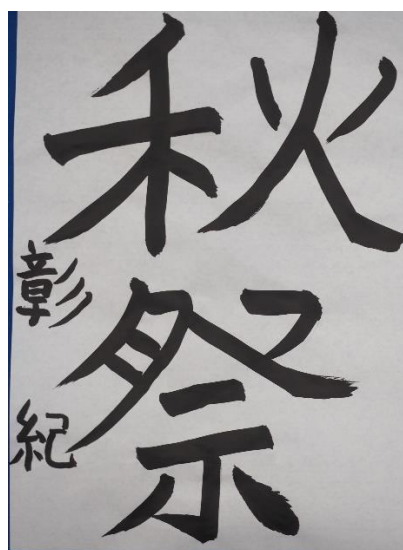 秋祭
彰紀